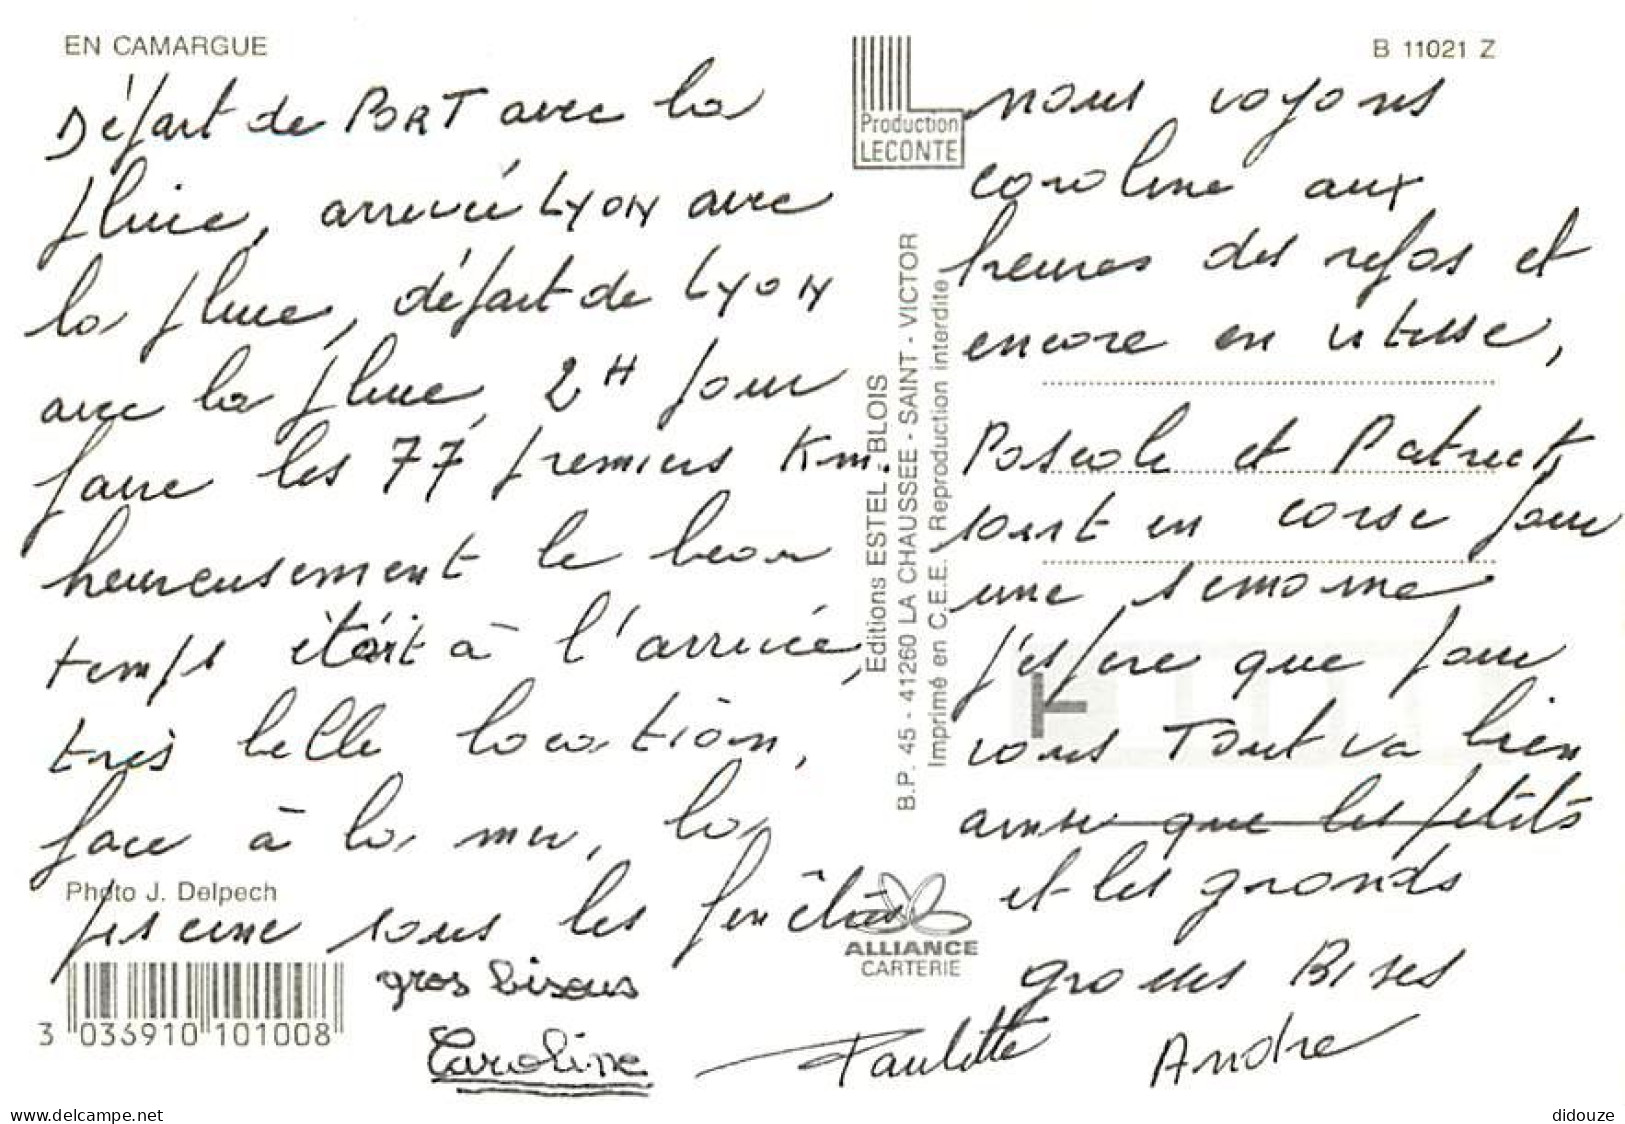 EN CAMARGUE
Départ de PORT avec la
pluie, arrivée Lyon avec
la pluie, départ de Lyon
avec la pluie, 2H pour
faire les 77 premiers Km.
heureusement le beau
temps était à l'arrivée,
très belle location,
face à la mer, la
Photo J. Delpech
piscine sous les fenêtres
gros bisous
Caroline
3 033910 101008
Production
LECONTE
Editions ESTEL-BLOIS
B.P. 45 - 41260 LA CHAUSSÉE - SAINT - VICTOR
Imprimé en C.E.E. Reproduction interdite
ALLIANCE
CARTERIE
B 11021 Z
nous voyons
caroline aux
heures des repas et
encore en vitesse,
Pascale et Patrick
sont en corse pour
une semaine
j'espère que pour
vous Tout va bien
ainsi que les petits
et les grands
grosses Bises
Paulette Andre
didouze
www.delcampe.net